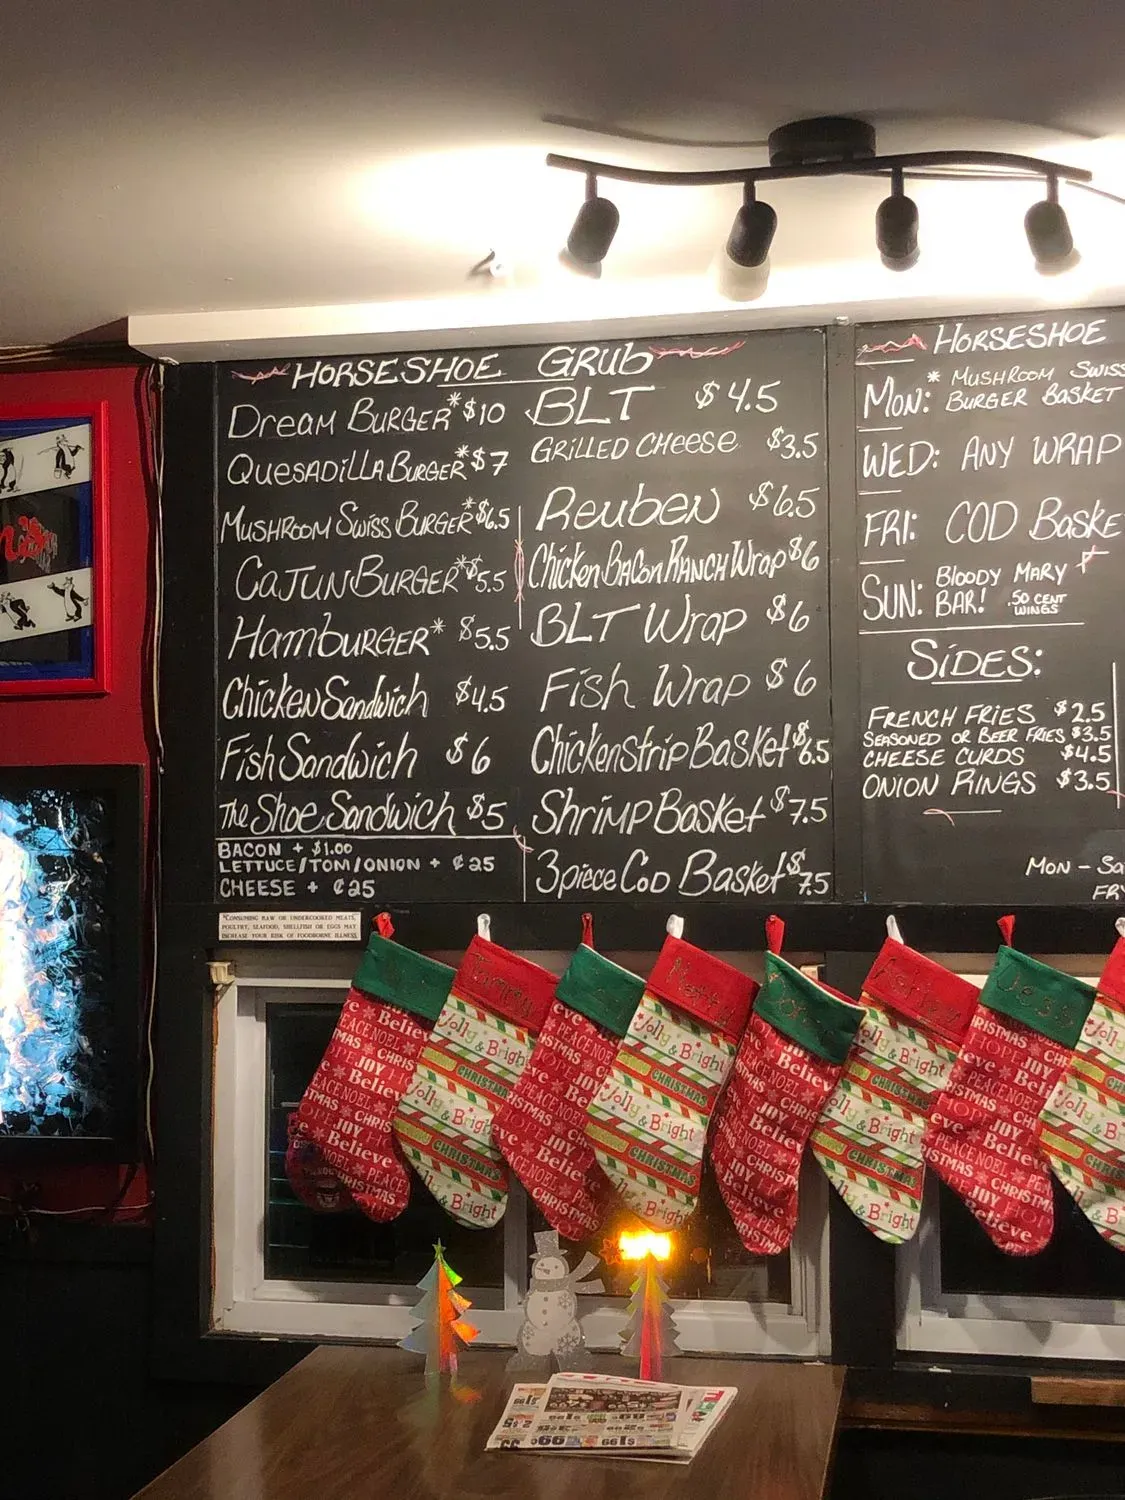 HORSESHOE GRUB
DREAM BURGER* $10
QUESADILLA BURGER* $7
MUSHROOM SWISS BURGER* $6.5
CAJUN BURGER* $5.5
HAMBURGER* $5.5
CHICKEN SANDWICH $4.5
FISH SANDWICH $6
THE SHOE SANDWICH $5
BACON + $1.00
LETTUCE/TOM/ONION + ¢25
CHEESE + ¢25
*CONSUMING RAW OR UNDERCOOKED MEATS,
POULTRY, SEAFOOD, SHELLFISH OR EGGS MAY
INCREASE YOUR RISK OF FOODBORNE ILLNESS
BLT $4.5
GRILLED CHEESE $3.5
REUBEN $6.5
CHICKEN BACON RANCH WRAP $6
BLT WRAP $6
FISH WRAP $6
CHICKEN STRIP BASKET $6.5
SHRIMP BASKET $7.5
3 PIECE COD BASKET $7.5
HORSESHOE
MON: * MUSHROOM SWISS
BURGER BASKET
WED: ANY WRAP
FRI: COD BASKE
SUN: BLOODY MARY
BAR! .50 CENT
WINGS
SIDES:
FRENCH FRIES $2.5
SEASONED OR BEER FRIES $3.5
CHEESE CURDS $4.5
ONION RINGS $3.5
MON - SA
FR
Tammy
Matt
Ashley
Jessi
Believe
PEACE NOEL
CHRISTMAS
JOY
Jolly & Bright
CHRISTMAS